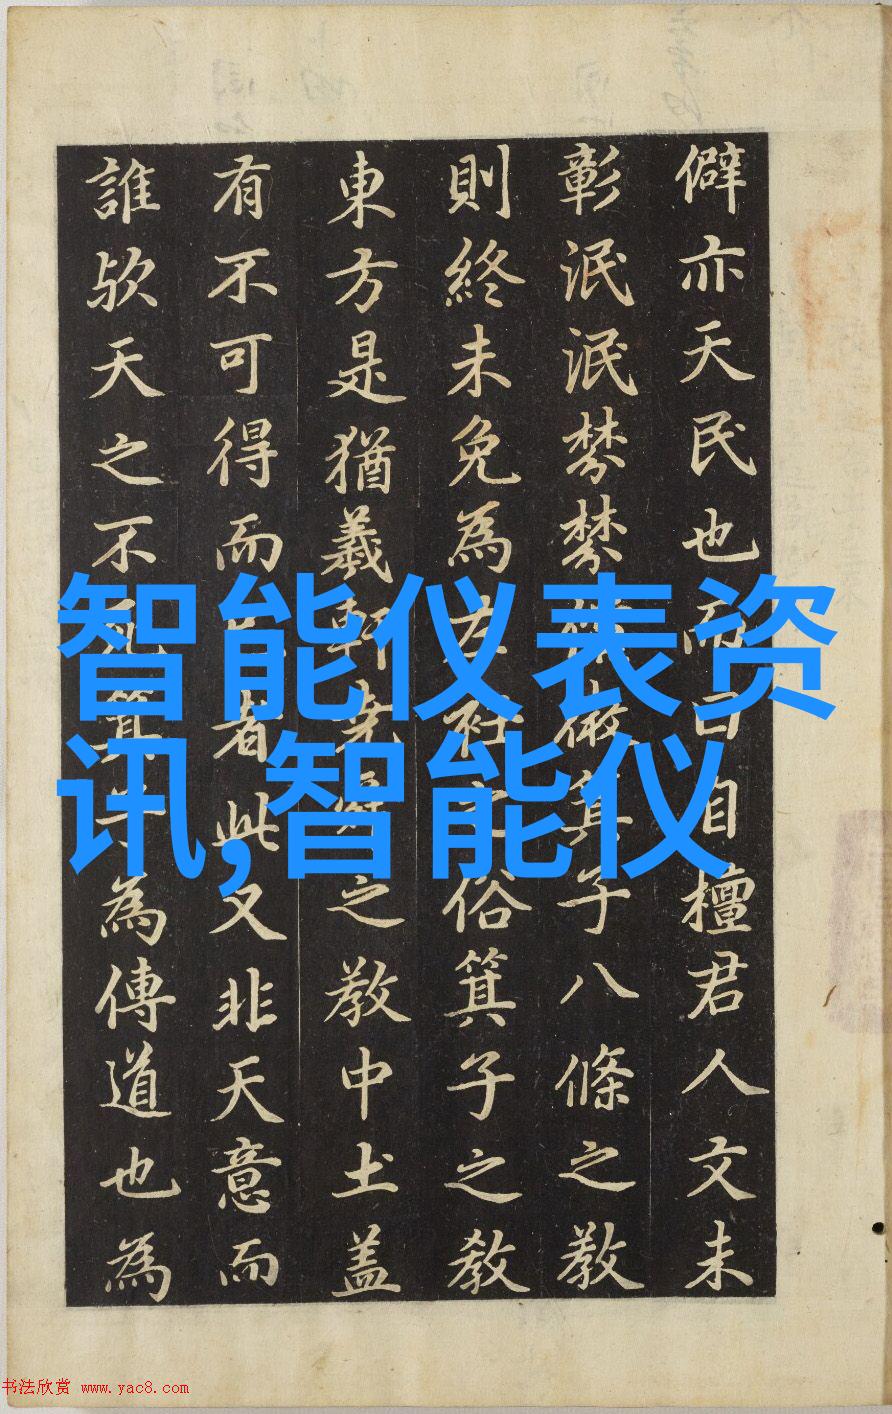 僻亦天民也而曰自檀君人文未
彰泯泯棼棼微箕子八條之教
則終未免為左衽之俗箕子之教
東方是猶羲軒堯舜之教中土盖
有不可得而者此又非天意而
誰歟天之不死箕子為傳道也為
智能仪表资
讯,智能仪
书法欣赏 www.yac8.com